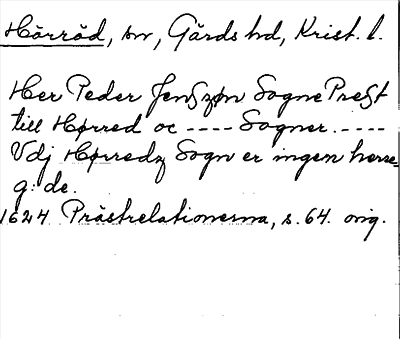 Hörröd, sn, Gärds hd, Krist. l.
Her Peder Jenszøn Sogne Prest
till Hørred oc ---- Sogner. ----
Vdj Hørredz Sogn er ingen herre-
g: de.
1624 Prästrelationerna, s. 64. orig.